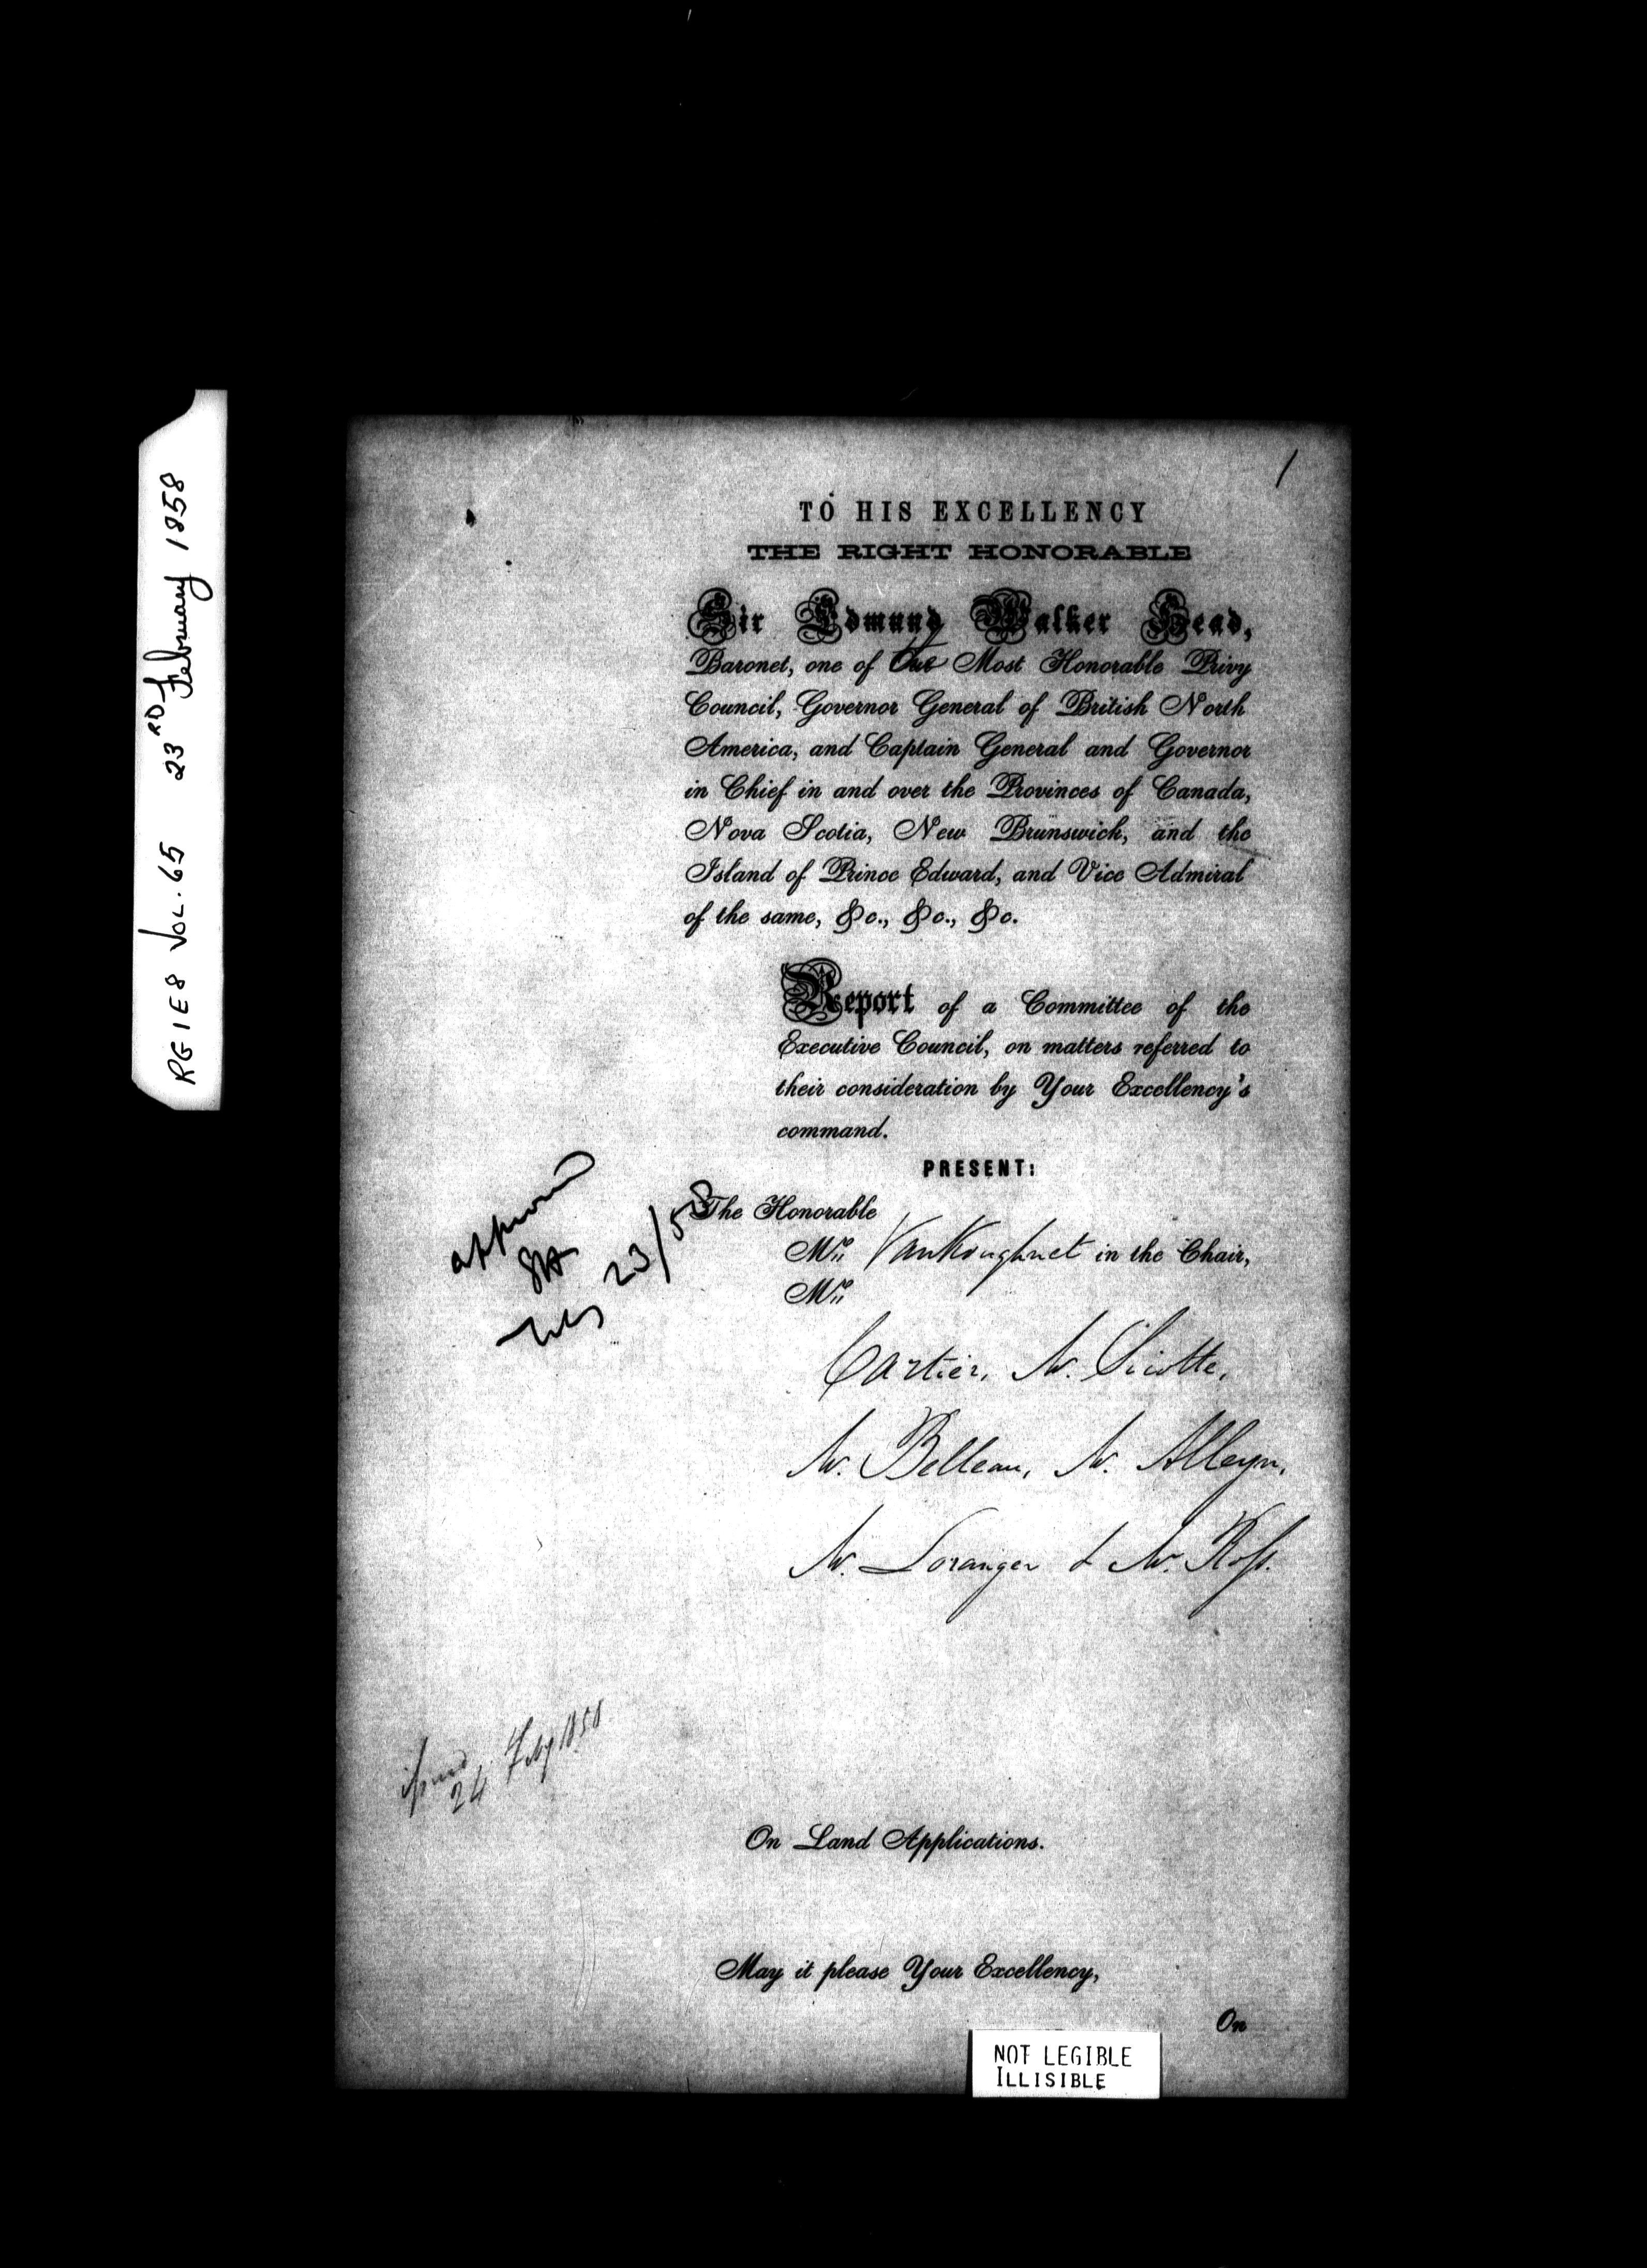 RG1E8 VOL. 65 23RD February 1858
1
TO HIS EXCELLENCY
THE RIGHT HONORABLE
Sir Edmund Walker Head,
Baronet, one of Most Honorable Privy
Council, Governor General of British North
America, and Captain General and Governor
in Chief in and over the Provinces of Canada,
Nova Scotia, New Brunswick, and the
Island of Prince Edward, and Vice Admiral
of the same, &c., &c., &c.
Report of a Committee of the
Executive Council, on matters referred to
their consideration by Your Excellency's
command.
PRESENT:
The Honorable
Mr. VanKoughnet in the Chair,
Mr.
Cartier, Mr. Sicotte,
Mr. Belleau, Mr. Alleyn,
Mr. Loranger & Mr. Ross.
approved
Feb 23/58
24 Feby 1858
On Land Applications.
May it please Your Excellency,
On
NOT LEGIBLE
ILLISIBLE